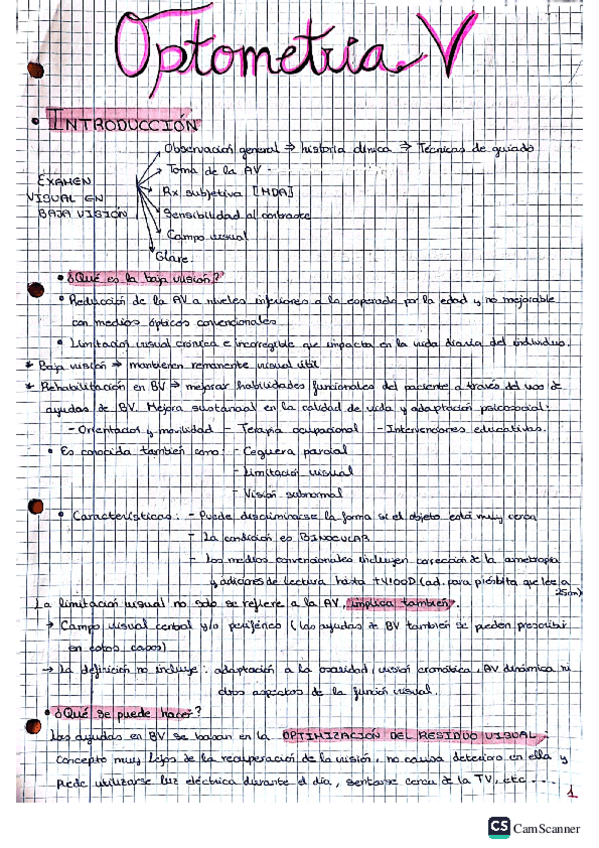 Optometría V
• INTRODUCCIÓN
EXAMEN VISUAL EN BAJA VISIÓN
Observación general → historia clínica → Técnicas de guiado
Toma de la AV.
Rx subjetiva [MDA]
Sensibilidad al contraste
Campo visual
Glare
• ¿Qué es la baja visión?
• Reducción de la AV a niveles inferiores a lo esperado por la edad y no mejorable
con medios ópticos convencionales
• Limitación visual crónica e incorregible que impacta en la vida diaria del individuo.
* Baja visión → mantienen remanente visual útil
* Rehabilitación en BV → mejorar habilidades funcionales del paciente a través del uso de
ayudas de BV. Mejora sustancial en la calidad de vida y adaptación psicosocial:
- Orientación y movilidad - Terapia ocupacional - Intervenciones educativas.
• Es conocida también como: - Ceguera parcial
- Limitación visual
- Visión subnormal
• Características: - Puede discriminarse la forma si el objeto está muy cerca
- La condición es BINOCULAR
- Los medios convencionales incluyen corrección de la ametropía
y adiciones de lectura hasta +4'00D (ad. para présbita que lee a
25cm)
La limitación visual no solo se refiere a la AV, implica también:
→ Campo visual central y/o periférico (las ayudas de BV también se pueden prescribir
en estos casos)
→ La definición no incluye: adaptación a la oscuridad, visión cromática, AV dinámica ni
otros aspectos de la función visual.
• ¿Qué se puede hacer?
Las ayudas en BV se basan en la OPTIMIZACIÓN DEL RESIDUO VISUAL:
concepto muy lejos de la recuperación de la visión, no causa deterioro en ella y
puede utilizarse luz eléctrica durante el día, sentarse cerca de la TV, etc...
1
CS CamScanner